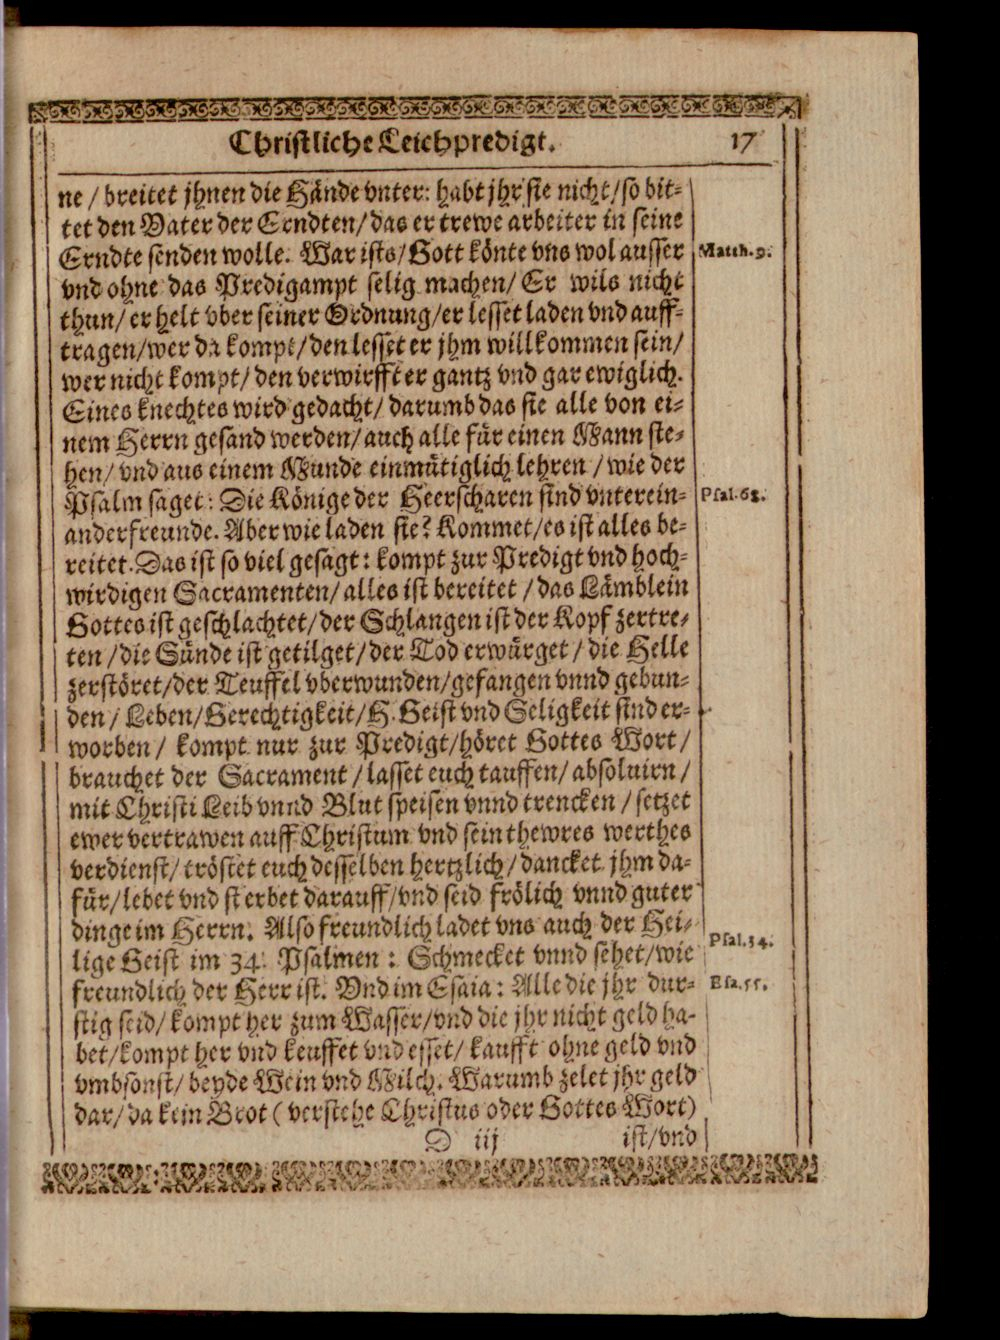 Christliche Leichpredigt. 17
ne / breitet jhnen die Hände vnter: habt jhr sie nicht/so bit-
tet den Vater der Erndten/das er trewe arbeiter in seine
Erndte senden wolle. War ists/Gott könte vns wol ausser
Matth.9.
vnd ohne das Predigampt selig machen/ Er wils nicht
thun/ er helt vber seiner Ordnung/er lesset laden vnd auff-
tragen/wer da kompt/den lesset er jhm willkommen sein/
wer nicht kompt/ den verwirfft er gantz vnd gar ewiglich.
Eines knechtes wird gedacht/ darumb das sie alle von ei-
nem Herrn gesand werden/ auch alle für einen Mann ste-
hen/ vnd aus einem Munde einmütiglich lehren / wie der
Psalm saget: Die Könige der Heerscharen sind vnterein-
Psal.68.
ander freunde. Aber wie laden sie? Kommet/es ist alles be-
reitet. Das ist so viel gesagt: kompt zur Predigt vnd hoch-
wirdigen Sacramenten/ alles ist bereitet / das Lämblein
Gottes ist geschlachtet/der Schlangen ist der Kopf zertre-
ten / die Sünde ist getilget/der Tod erwürget / die Helle
zerstöret/der Teuffel vberwunden/gefangen vnnd gebun-
den / Leben/Gerechtigkeit/H. Geist vnd Seligkeit sind er-
worben / kompt nur zur Predigt/höret Gottes Wort/
brauchet der Sacrament / lasset euch tauffen/ absoluirn /
mit Christi Leib vnnd Blut speisen vnnd trencken / setzet
ewer vertrawen auff Christum vnd sein thewres werthes
verdienst/ tröstet euch desselben hertzlich/ dancket jhm da-
für/lebet vnd sterbet darauff/vnd seid frölich vnnd guter
dinge im Herrn. Also freundlich ladet vns auch der Hei-
lige Geist im 34. Psalmen: Schmecket vnnd sehet/wie
Psal.34.
freundlich der Herr ist. Vnd im Esaia: Alle die jhr dur-
Esa.55.
stig seid/ kompt her zum Wasser/vnd die jhr nicht geld ha-
bet/kompt her vnd keuffet vnd esset/ kaufft ohne geld vnd
vmbsonst/ beyde Wein vnd Milch. Warumb zelet jhr geld
dar/ da kein Brot ( verstehe Christus oder Gottes Wort)
D iij ist/vnd